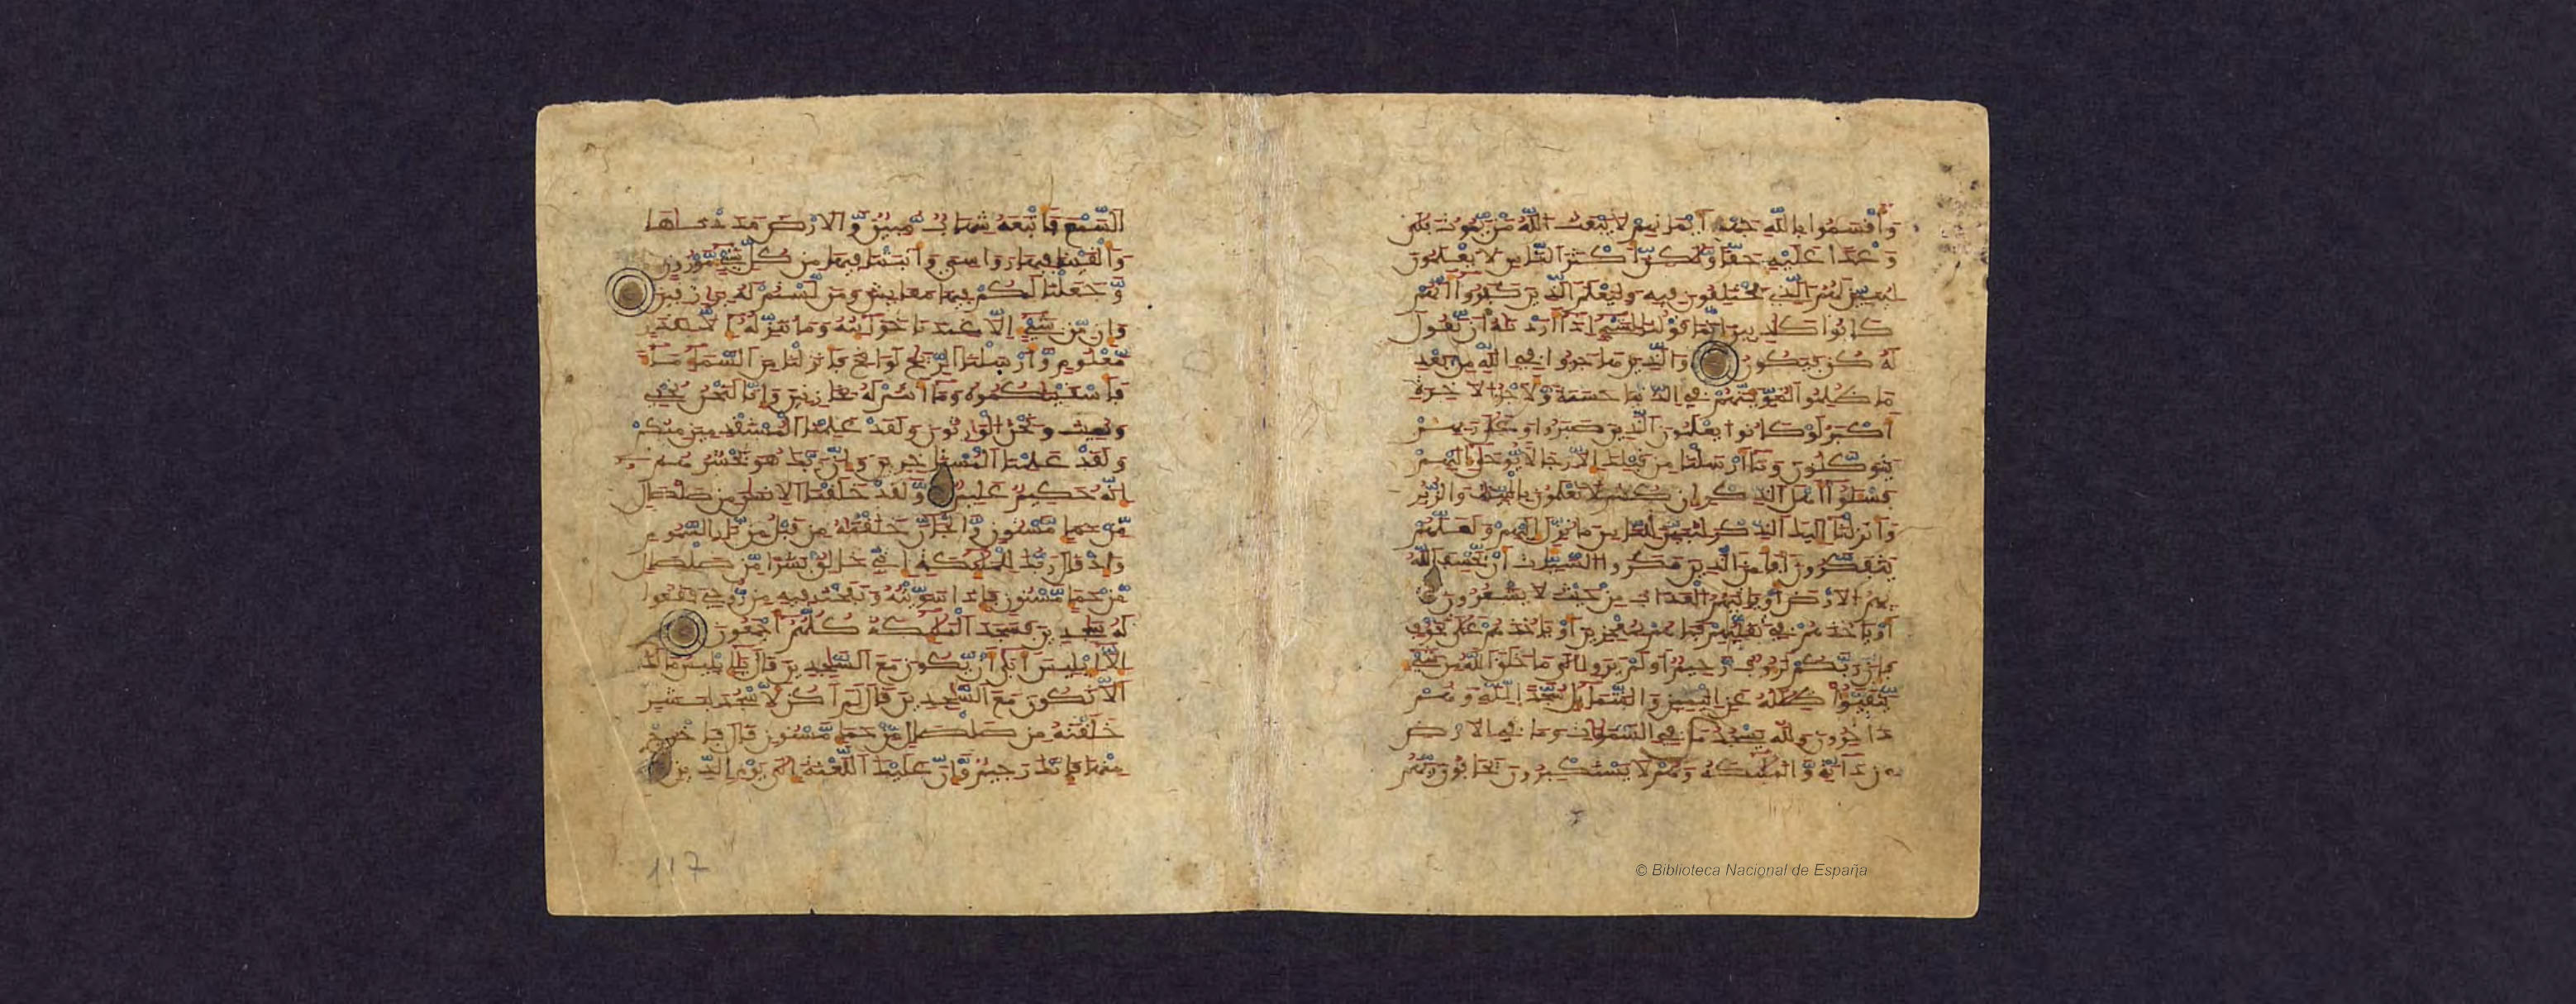 وَأَقْسَمُوا بِاللَّهِ جَهْدَ أَيْمَانِهِمْ لَا يَبْعَثُ اللَّهُ مَنْ يَمُوتُ بَلَى
وَعْدًا عَلَيْهِ حَقًّا وَلَٰكِنَّ أَكْثَرَ النَّاسِ لَا يَعْلَمُونَ
لِيُبَيِّنَ لَهُمُ الَّذِي يَخْتَلِفُونَ فِيهِ وَلِيَعْلَمَ الَّذِينَ كَفَرُوا أَنَّهُمْ
كَانُوا كَٰذِبِينَ إِنَّمَا قَوْلُنَا لِشَيْءٍ إِذَا أَرَدْنَٰهُ أَنْ نَقُولَ
لَهُ كُنْ فَيَكُونُ وَالَّذِينَ هَاجَرُوا فِي اللَّهِ مِنْ بَعْدِ
مَا ظُلِمُوا لَنُبَوِّئَنَّهُمْ فِي الدُّنْيَا حَسَنَةً وَلَأَجْرُ الْآخِرَةِ
أَكْبَرُ لَوْ كَانُوا يَعْلَمُونَ الَّذِينَ صَبَرُوا وَعَلَى رَبِّهِمْ
يَتَوَكَّلُونَ وَمَا أَرْسَلْنَا مِنْ قَبْلِكَ إِلَّا رِجَالًا يُوحَى إِلَيْهِمْ
فَسْـَٔلُوا أَهْلَ الذِّكْرِ إِنْ كُنْتُمْ لَا تَعْلَمُونَ بِالْبَيِّنَٰتِ وَالزُّبُرِ
وَأَنْزَلْنَا إِلَيْكَ الذِّكْرَ لِتُبَيِّنَ لِلنَّاسِ مَا نُزِّلَ إِلَيْهِمْ وَلَعَلَّهُمْ
يَتَفَكَّرُونَ أَفَأَمِنَ الَّذِينَ مَكَرُوا السَّيِّـَٔاتِ أَنْ يَخْسِفَ اللَّهُ
بِهِمُ الْأَرْضَ أَوْ يَأْتِيَهُمُ الْعَذَابُ مِنْ حَيْثُ لَا يَشْعُرُونَ
أَوْ يَأْخُذَهُمْ فِي تَقَلُّبِهِمْ فَمَا هُمْ بِمُعْجِزِينَ أَوْ يَأْخُذَهُمْ عَلَى تَخَوُّفٍ
فَإِنَّ رَبَّكُمْ لَرَءُوفٌ رَحِيمٌ أَوَلَمْ يَرَوْا إِلَى مَا خَلَقَ اللَّهُ مِنْ شَيْءٍ
يَتَفَيَّؤُا ظِلَٰلُهُ عَنِ الْيَمِينِ وَالشَّمَائِلِ سُجَّدًا لِلَّهِ وَهُمْ
دَاخِرُونَ وَلِلَّهِ يَسْجُدُ مَا فِي السَّمَٰوَٰتِ وَمَا فِي الْأَرْضِ
مِنْ دَابَّةٍ وَالْمَلَٰئِكَةُ وَهُمْ لَا يَسْتَكْبِرُونَ يَخَافُونَ رَبَّهُمْ
السَّمْعَ فَأَتْبَعَهُ شِهَابٌ مُبِينٌ وَالْأَرْضَ مَدَدْنَٰهَا
وَأَلْقَيْنَا فِيهَا رَوَاسِيَ وَأَنْبَتْنَا فِيهَا مِنْ كُلِّ شَيْءٍ مَوْزُونٍ
وَجَعَلْنَا لَكُمْ فِيهَا مَعَايِشَ وَمَنْ لَسْتُمْ لَهُ بِرَازِقِينَ
وَإِنْ مِنْ شَيْءٍ إِلَّا عِنْدَنَا خَزَائِنُهُ وَمَا نُنَزِّلُهُ إِلَّا بِقَدَرٍ
مَعْلُومٍ وَأَرْسَلْنَا الرِّيَٰحَ لَوَاقِحَ فَأَنْزَلْنَا مِنَ السَّمَاءِ مَاءً
فَأَسْقَيْنَٰكُمُوهُ وَمَا أَنْتُمْ لَهُ بِخَازِنِينَ وَإِنَّا لَنَحْنُ نُحْيِي
وَنُمِيتُ وَنَحْنُ الْوَارِثُونَ وَلَقَدْ عَلِمْنَا الْمُسْتَقْدِمِينَ مِنْكُمْ
وَلَقَدْ عَلِمْنَا الْمُسْتَأْخِرِينَ وَإِنَّ رَبَّكَ هُوَ يَحْشُرُهُمْ
إِنَّهُ حَكِيمٌ عَلِيمٌ وَلَقَدْ خَلَقْنَا الْإِنْسَٰنَ مِنْ صَلْصَٰلٍ
مِنْ حَمَإٍ مَسْنُونٍ وَالْجَانَّ خَلَقْنَٰهُ مِنْ قَبْلُ مِنْ نَارِ السَّمُومِ
وَإِذْ قَالَ رَبُّكَ لِلْمَلَٰئِكَةِ إِنِّي خَٰلِقٌ بَشَرًا مِنْ صَلْصَٰلٍ
مِنْ حَمَإٍ مَسْنُونٍ فَإِذَا سَوَّيْتُهُ وَنَفَخْتُ فِيهِ مِنْ رُوحِي فَقَعُوا
لَهُ سَٰجِدِينَ فَسَجَدَ الْمَلَٰئِكَةُ كُلُّهُمْ أَجْمَعُونَ
إِلَّا إِبْلِيسَ أَبَى أَنْ يَكُونَ مَعَ السَّٰجِدِينَ قَالَ يَٰإِبْلِيسُ مَا لَكَ
أَلَّا تَكُونَ مَعَ السَّٰجِدِينَ قَالَ لَمْ أَكُنْ لِأَسْجُدَ لِبَشَرٍ
خَلَقْتَهُ مِنْ صَلْصَٰلٍ مِنْ حَمَإٍ مَسْنُونٍ قَالَ فَاخْرُجْ
مِنْهَا فَإِنَّكَ رَجِيمٌ وَإِنَّ عَلَيْكَ اللَّعْنَةَ إِلَى يَوْمِ الدِّينِ
117
© Biblioteca Nacional de España